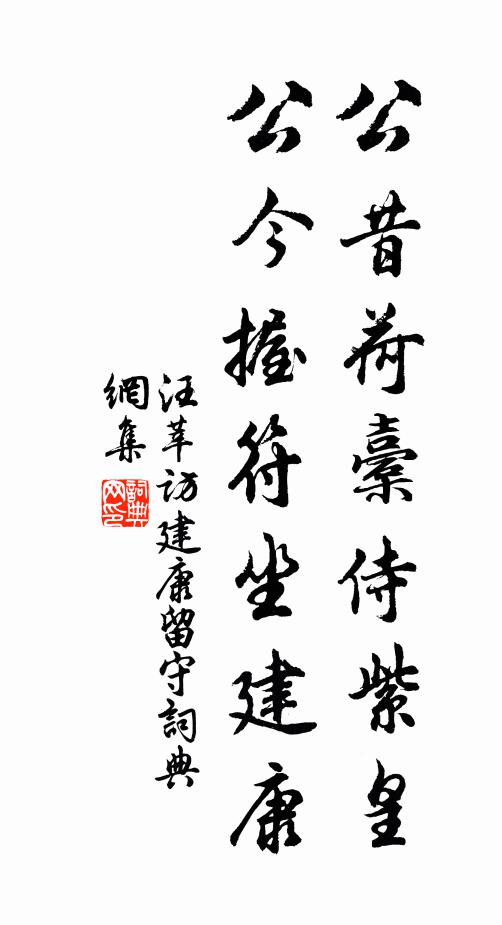 公昔荷橐侍紫皇
公今握符坐建康
汪莘访建康留守詞典
網集
詞典网印